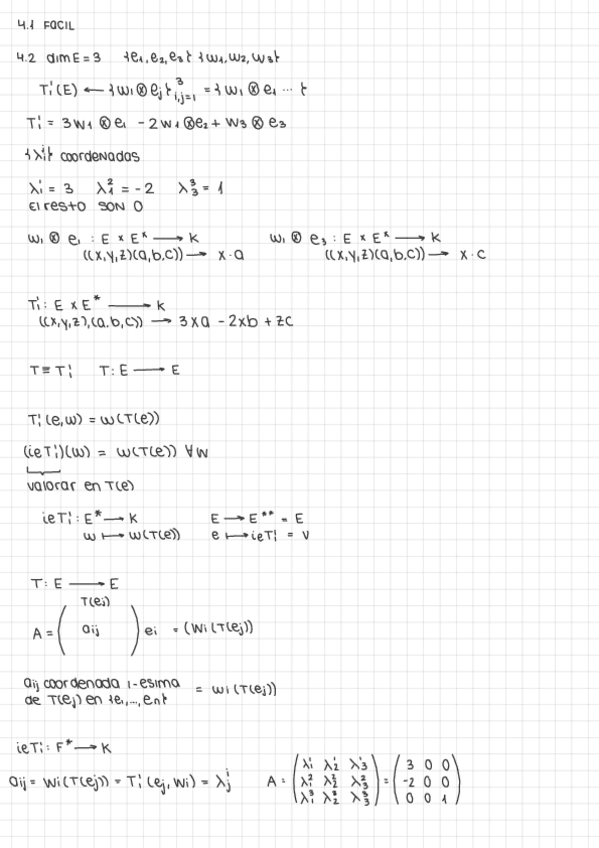 4.1 FACIL
4.2 dim E = 3 {e₁, e₂, e₃} {w₁, w₂, w₃}
T₁¹(E) ← {wᵢ ⊗ eⱼ}³ᵢ,ⱼ₌₁ = {w₁ ⊗ e₁ ... }
T₁¹ = 3w₁ ⊗ e₁ - 2w₁ ⊗ e₂ + w₃ ⊗ e₃
{λᵢʲ} coordenadas
λ₁¹ = 3 λ₁² = -2 λ₃³ = 1
El resto SON 0
w₁ ⊗ e₁ : E × E* → K w₁ ⊗ e₃ : E × E* → K
((x,y,z)(a,b,c)) → x·a ((x,y,z)(a,b,c)) → x·c
T₁¹ : E × E* → K
((x,y,z),(a,b,c)) → 3xa - 2xb + zc
T ≡ T₁¹ T : E → E
T₁¹(e,w) = w(T(e))
(ieT₁¹)(w) = w(T(e)) ∀w
valorar en T(e)
ieT₁¹ : E* → K E → E** = E
w ↦ w(T(e)) e ↦ ieT₁¹ = V
T : E → E
T(eⱼ)
A = ( aij ) ei = (wi(T(ej))
aij coordenada i-esima = wi(T(ej))
de T(ej) en {e₁,...,en}
ieT₁¹ : F* → K
aij = wi(T(ej)) = T₁¹(ej, wi) = λⱼⁱ A = ( λ₁¹ λ₂¹ λ₃¹ ) = ( 3 0 0 )
( λ₁² λ₂² λ₃² ) ( -2 0 0 )
( λ₁³ λ₂³ λ₃³ ) ( 0 0 1 )